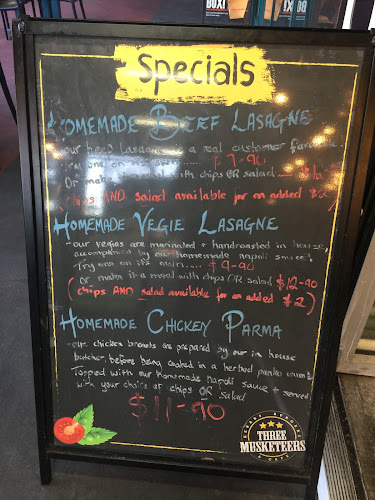 Specials
HOMEMADE BEEF LASAGNE
our beef lasagne is a real customer
Try one on
Or make it a meal with chips OR salad
chips AND salad available for an added $2)
HOMEMADE VEGIE LASAGNE
-our vegies are marinated + handroasted in house,
accompanied by our homemade napoli sauce!
Try one on its own..... $9-90
Or make it a meal with chips OR salad $12-90
(chips AND salad available for an added $2)
HOMEMADE CHICKEN PARMA
-our chicken breasts are prepared by our in house
butcher, before being cooked in a herbed panko crumb.
Topped with our homemade napoli sauce + served
with your choice of chips OR salad
$11-90
THREE
MUSKETEERS